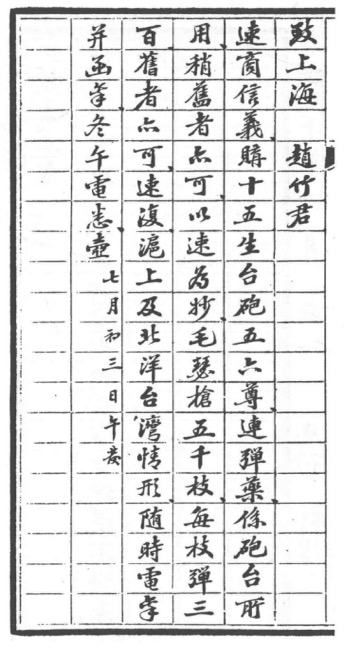 致上海 趙竹君
速商信義購十五生台砲五六尊連彈藥係砲台所
用稍舊者亦可以速為妙毛瑟槍五千枝每枝彈三
百舊者亦可速復滬上及北洋台灣情形隨時電
并函冬午電悉壺 七月初三日午發